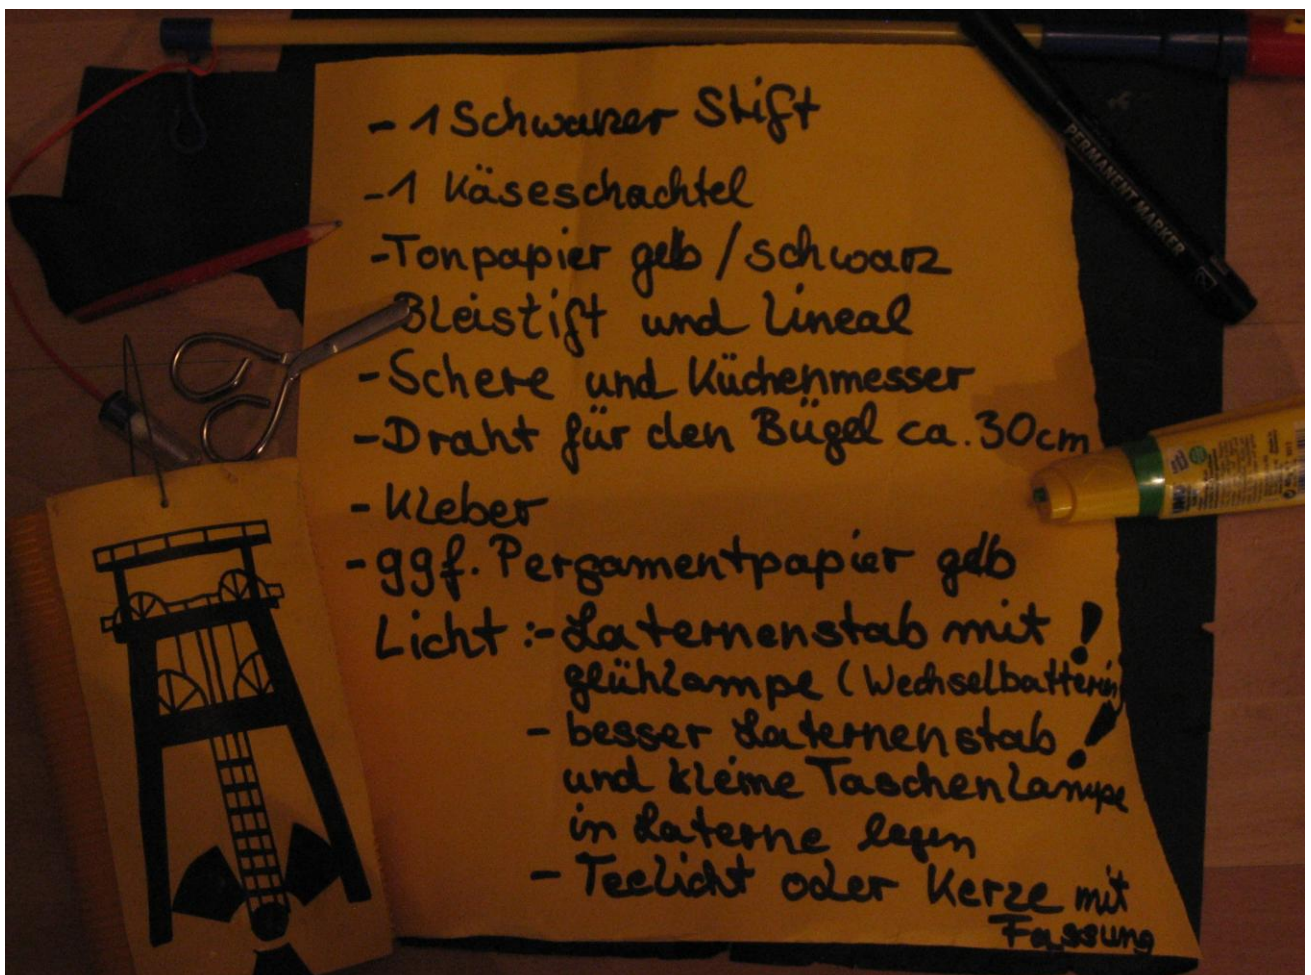 - 1 Schwarzer Stift
- 1 Käseschachtel
- Tonpapier gelb / schwarz
Bleistift und Lineal
- Schere und Küchenmesser
- Draht für den Bügel ca. 30cm
- Kleber
- ggf. Pergamentpapier gelb
Licht :- Laternenstab mit !
glühlampe (Wechselbatterien)
- besser Laternenstab !
und kleine Taschenlampe
in Laterne legen
- Teelicht oder Kerze mit
Fassung
PERMANENT MARKER